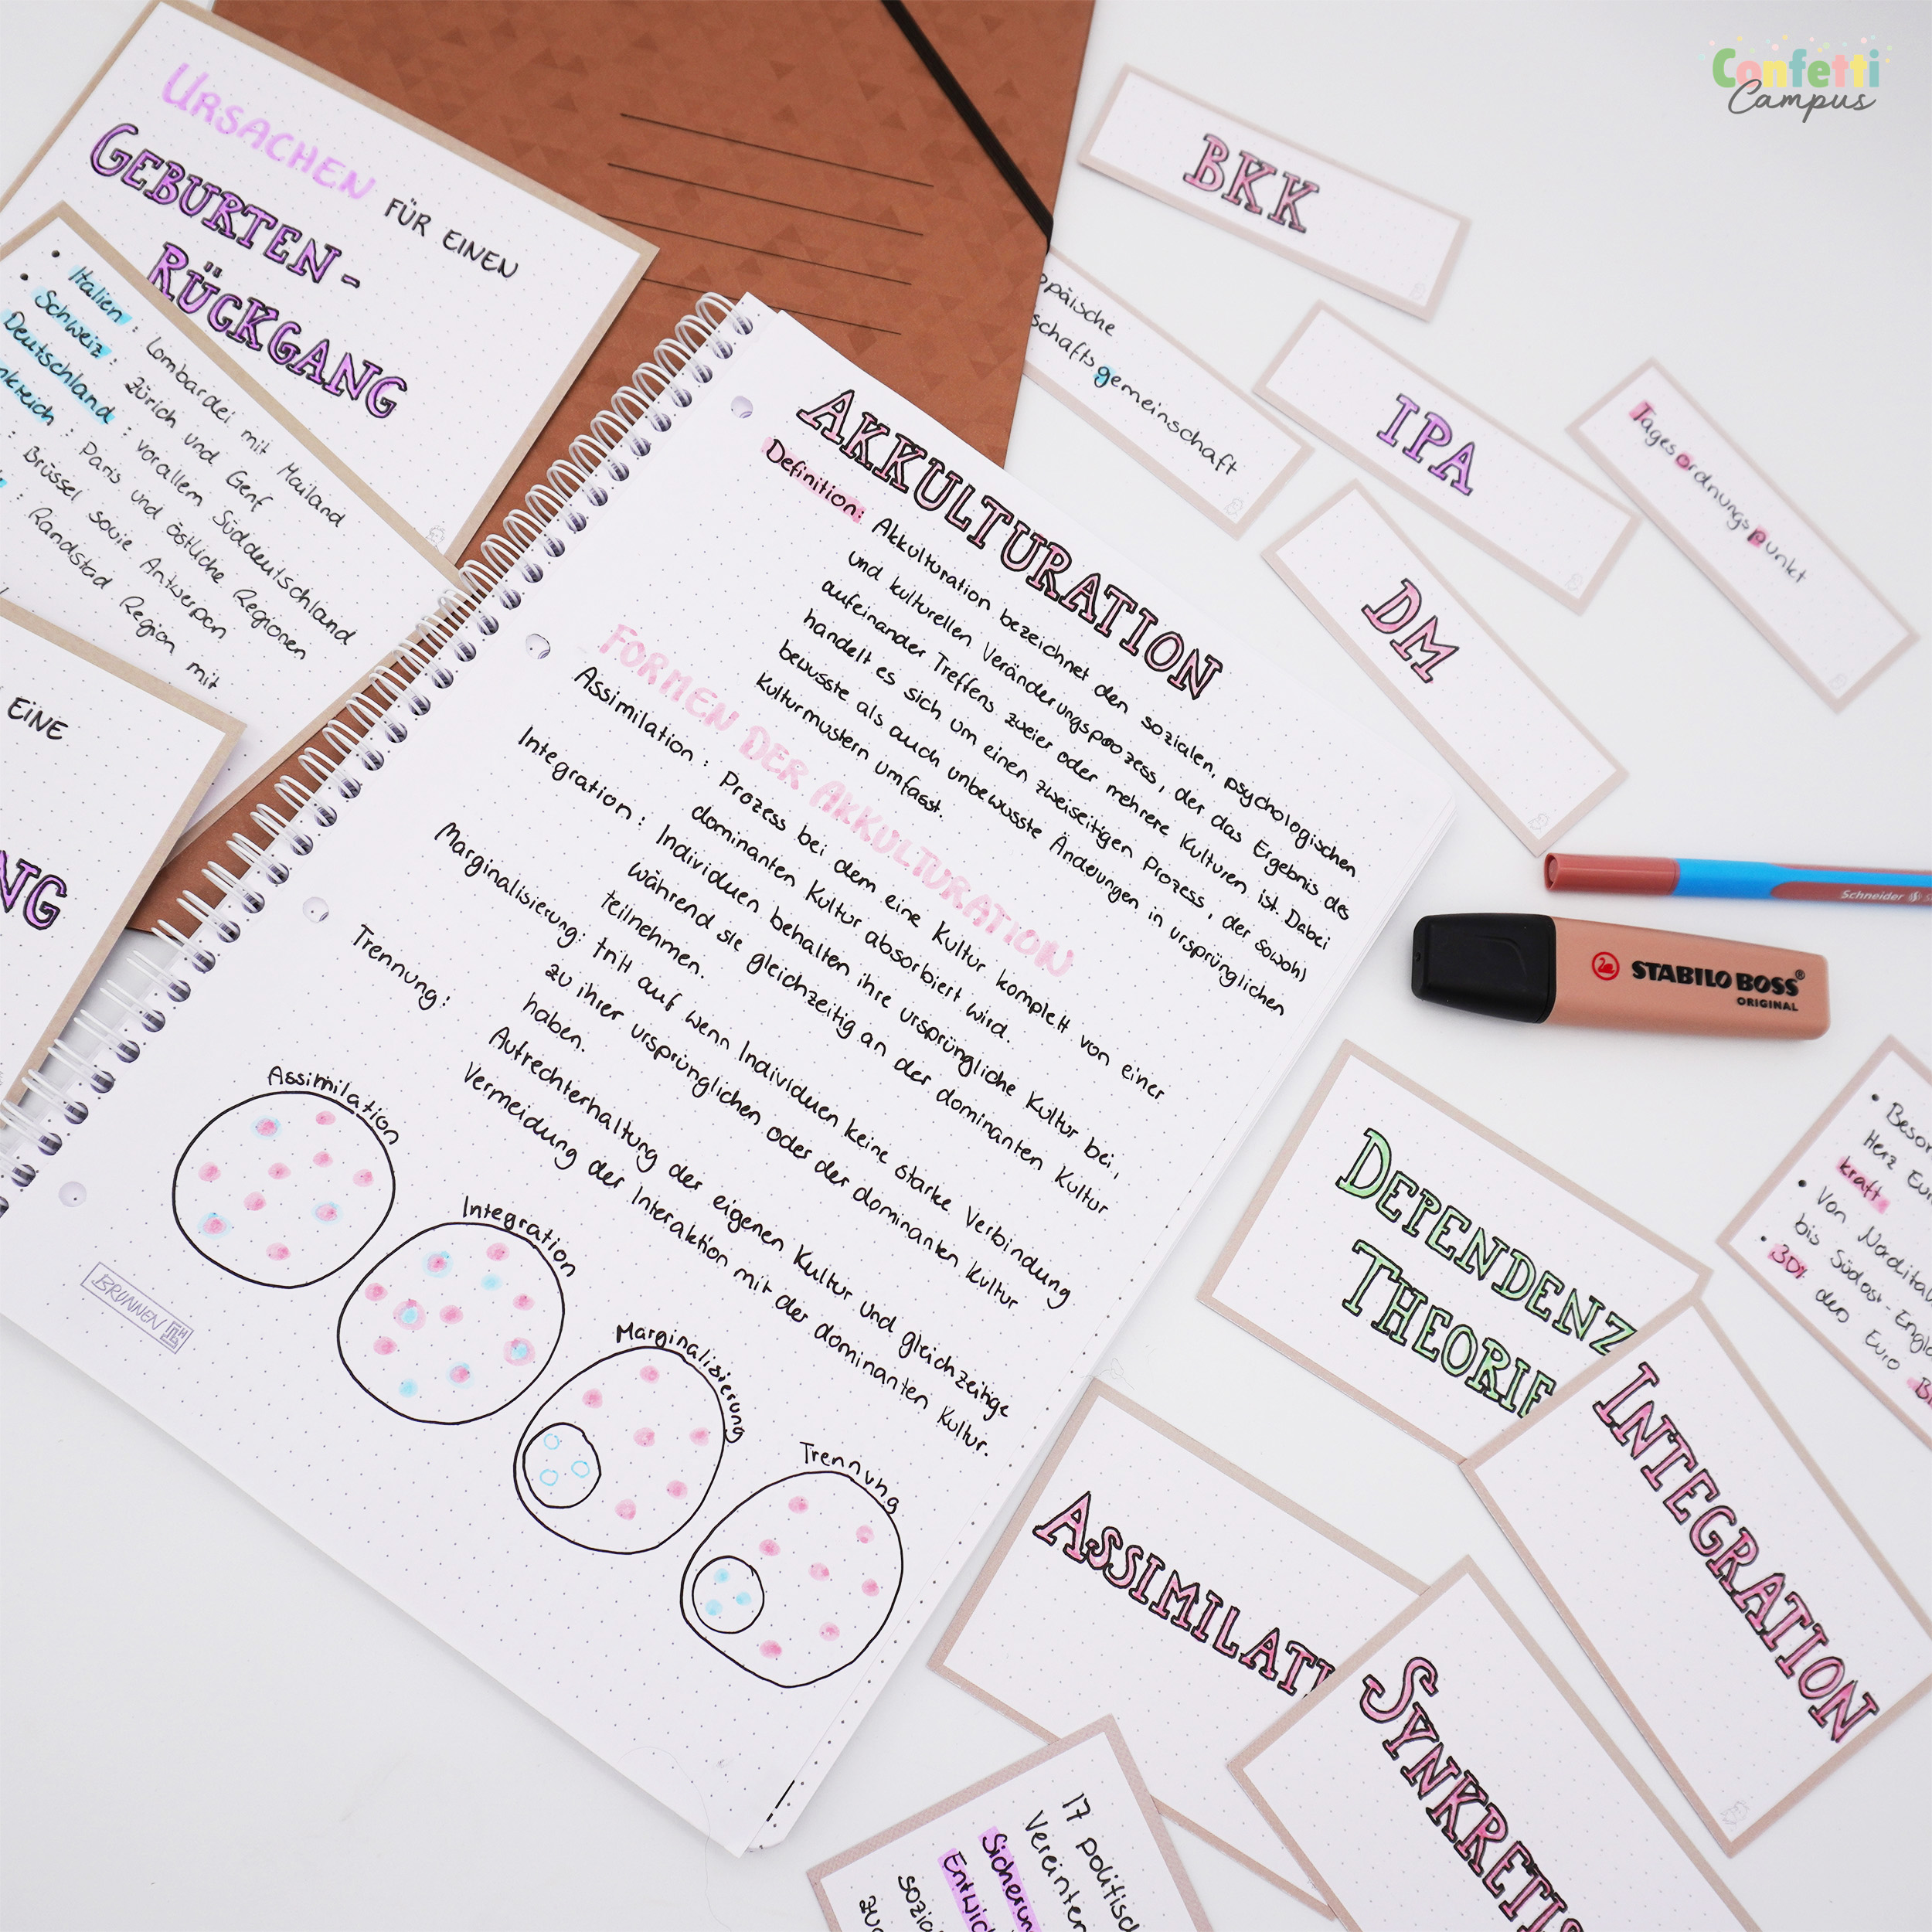 Confetti
Campus
URSACHEN FÜR EINEN
GEBURTEN-
RÜCKGANG
• Italien : Lombardei mit Mailand
• Schweiz : Zürich und Genf
Deutschland : vorallem Süddeutschland
: Paris und östliche Regionen
: Brüssel sowie Antwerpen
: Randstad Region mit
EINE
NG
AKKULTURATION
Definition: Akkulturation bezeichnet den sozialen, psychologischen
und kulturellen Veränderungsprozess, der das Ergebnis des
aufeinander Treffens zweier oder mehrere Kulturen ist. Dabei
handelt es sich um einen zweiseitigen Prozess, der sowohl
bewusste als auch unbewusste Änderungen in ursprünglichen
Kulturmustern umfasst.
FORMEN DER AKKULTURATION
Assimilation : Prozess bei dem eine Kultur komplett von einer
dominanten Kultur absorbiert wird.
Integration : Individuen behalten ihre ursprüngliche Kultur bei,
während sie gleichzeitig an der dominanten Kultur
teilnehmen.
Marginalisierung: tritt auf wenn Individuen keine starke Verbindung
zu ihrer ursprünglichen oder der dominanten Kultur
haben.
Trennung : Aufrechterhaltung der eigenen Kultur und gleichzeitige
Vermeidung der Interaktion mit der dominanten Kultur.
Assimilation
Integration
Marginalisierung
Trennung
BRUNNEN
BKK
päische
schaftsgemeinschaft
IPA
Tagesordnungspunkt
DM
Schneider
STABILO BOSS®
ORIGINAL
DEPENDENZ
THEORIE
• Beson
Herz Eur
kraft
• Von Nordital
bis Südost-Engla
• 30%
den Euro
INTEGRATION
ASSIMILATI
SYNKRETIS
17 politisc
Vereinten
Sicherun
Entwic
sozia